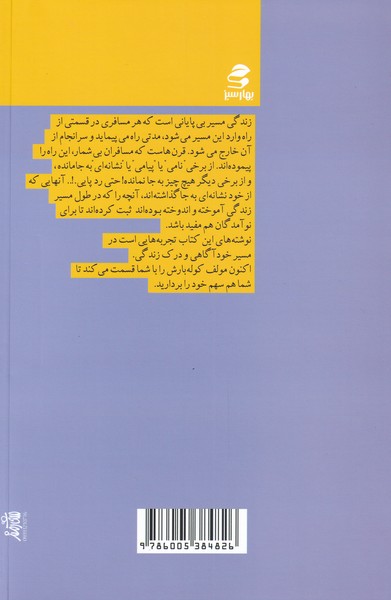 بهار سبز
زندگی مسیر بی پایانی است که هر مسافری در قسمتی از
راه وارد این مسیر می شود، مدتی راه می پیماید و سرانجام از
آن خارج می شود. قرن هاست که مسافران بی شمار، این راه را
پیموده‌اند. از برخی "نامی" یا "پیامی" یا "نشانه‌ای به جا مانده،
و از برخی دیگر هیچ چیز به جا نمانده! حتی رد پایی.!.. آنهایی که
از خود نشانه‌ای به جا گذاشته‌اند، آنچه را که در طول مسیر
زندگی آموخته و اندوخته بوده‌اند ثبت کرده‌اند تا برای
نو آمدگان هم مفید باشد.
نوشته‌های این کتاب تجربه‌هایی است در
مسیر خودآگاهی و درک زندگی.
اکنون مولف کوله‌بارش را با شما قسمت می کند تا
شما هم سهم خود را بردارید.
9 786005 384826